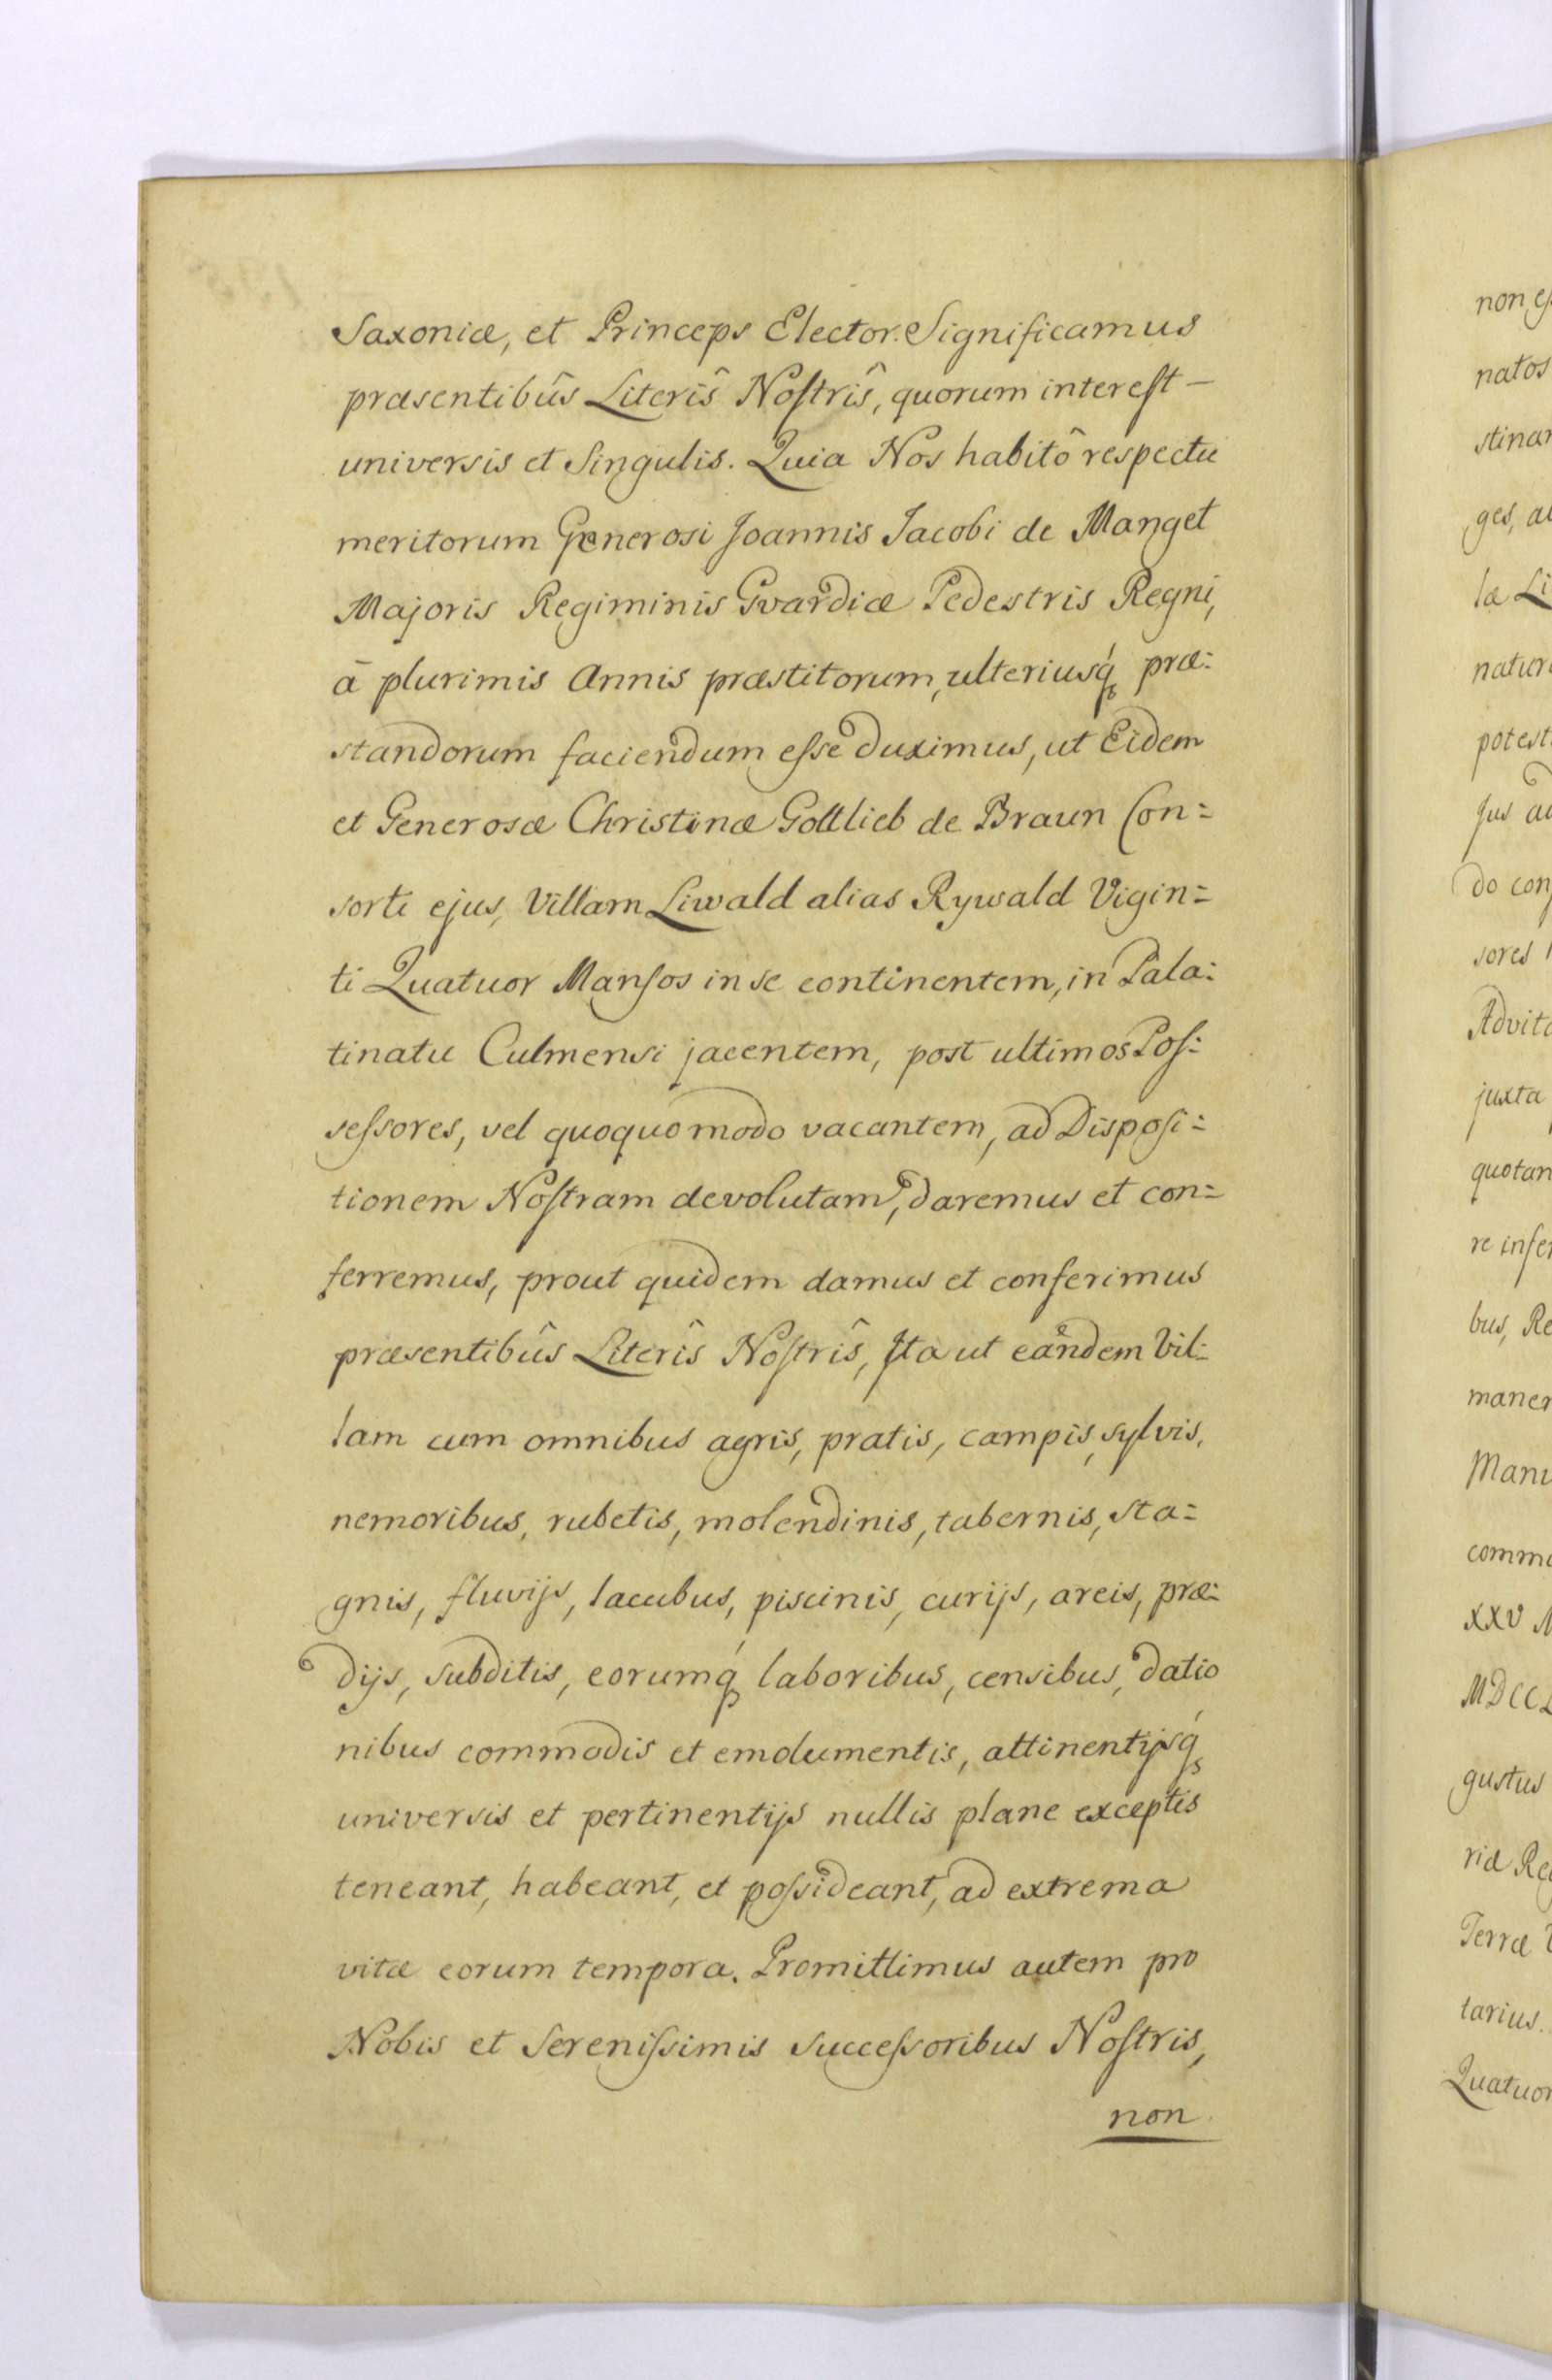 Saxoniæ, et Princeps Elector. Significamus
præsentibûs Literîs Noſtrîs, quorum intereſt —
universis et Singulis. Quia Nos habitô respectu
meritorum Generosi Joannis Jacobi de Manget
Majoris Regiminis Gvardiæ Pedestris Regni,
à plurimis Annis præstitorum, ulteriusq́ præ:
standorum faciendum eſse duximus, ut Eidem
et Generosæ Christinæ Gottlieb de Braun Con=
sorti ejus, Villam Liwald alias Rywald Vigin=
ti Quatuor Manſos in se continentem, in Pala:
tinatu Culmensi jacentem, post ultimos Poſ:
seſsores, vel quoquo modo vacantem, ad Diſpoſi=
tionem Noſtram devolutam, daremus et con=
ferremus, prout quidem damus et conferimus
præsentibûs Literîs Noſtrîs, Ita ut eandem Vil:
lam cum omnibus agris, pratis, campis, sylvis,
nemoribus, rubetis, molendinis, tabernis, sta=
gnis, fluvijs, lacubus, piscinis, curijs, areis, præ:
dijs, subditis, eorumq́ laboribus, censibus, datio
nibus commodis et emolumentis, attinentijsq́
universis et pertinentijs nullis plane exceptis
teneant, habeant, et poſsideant, ad extrema
vitæ eorum tempora. Promittimus autem pro
Nobis et Sereniſsimis Succeſsoribus Noſtris,
non
natos
ges, a
læ Li
natur
potest
Jus a
do con
sores
Advit
juxta
quotan
re infe
bus, Re
maner
Manu
comm
XXV
MDCC
gustus
riæ Re
Terræ
tarius.
Quatuor